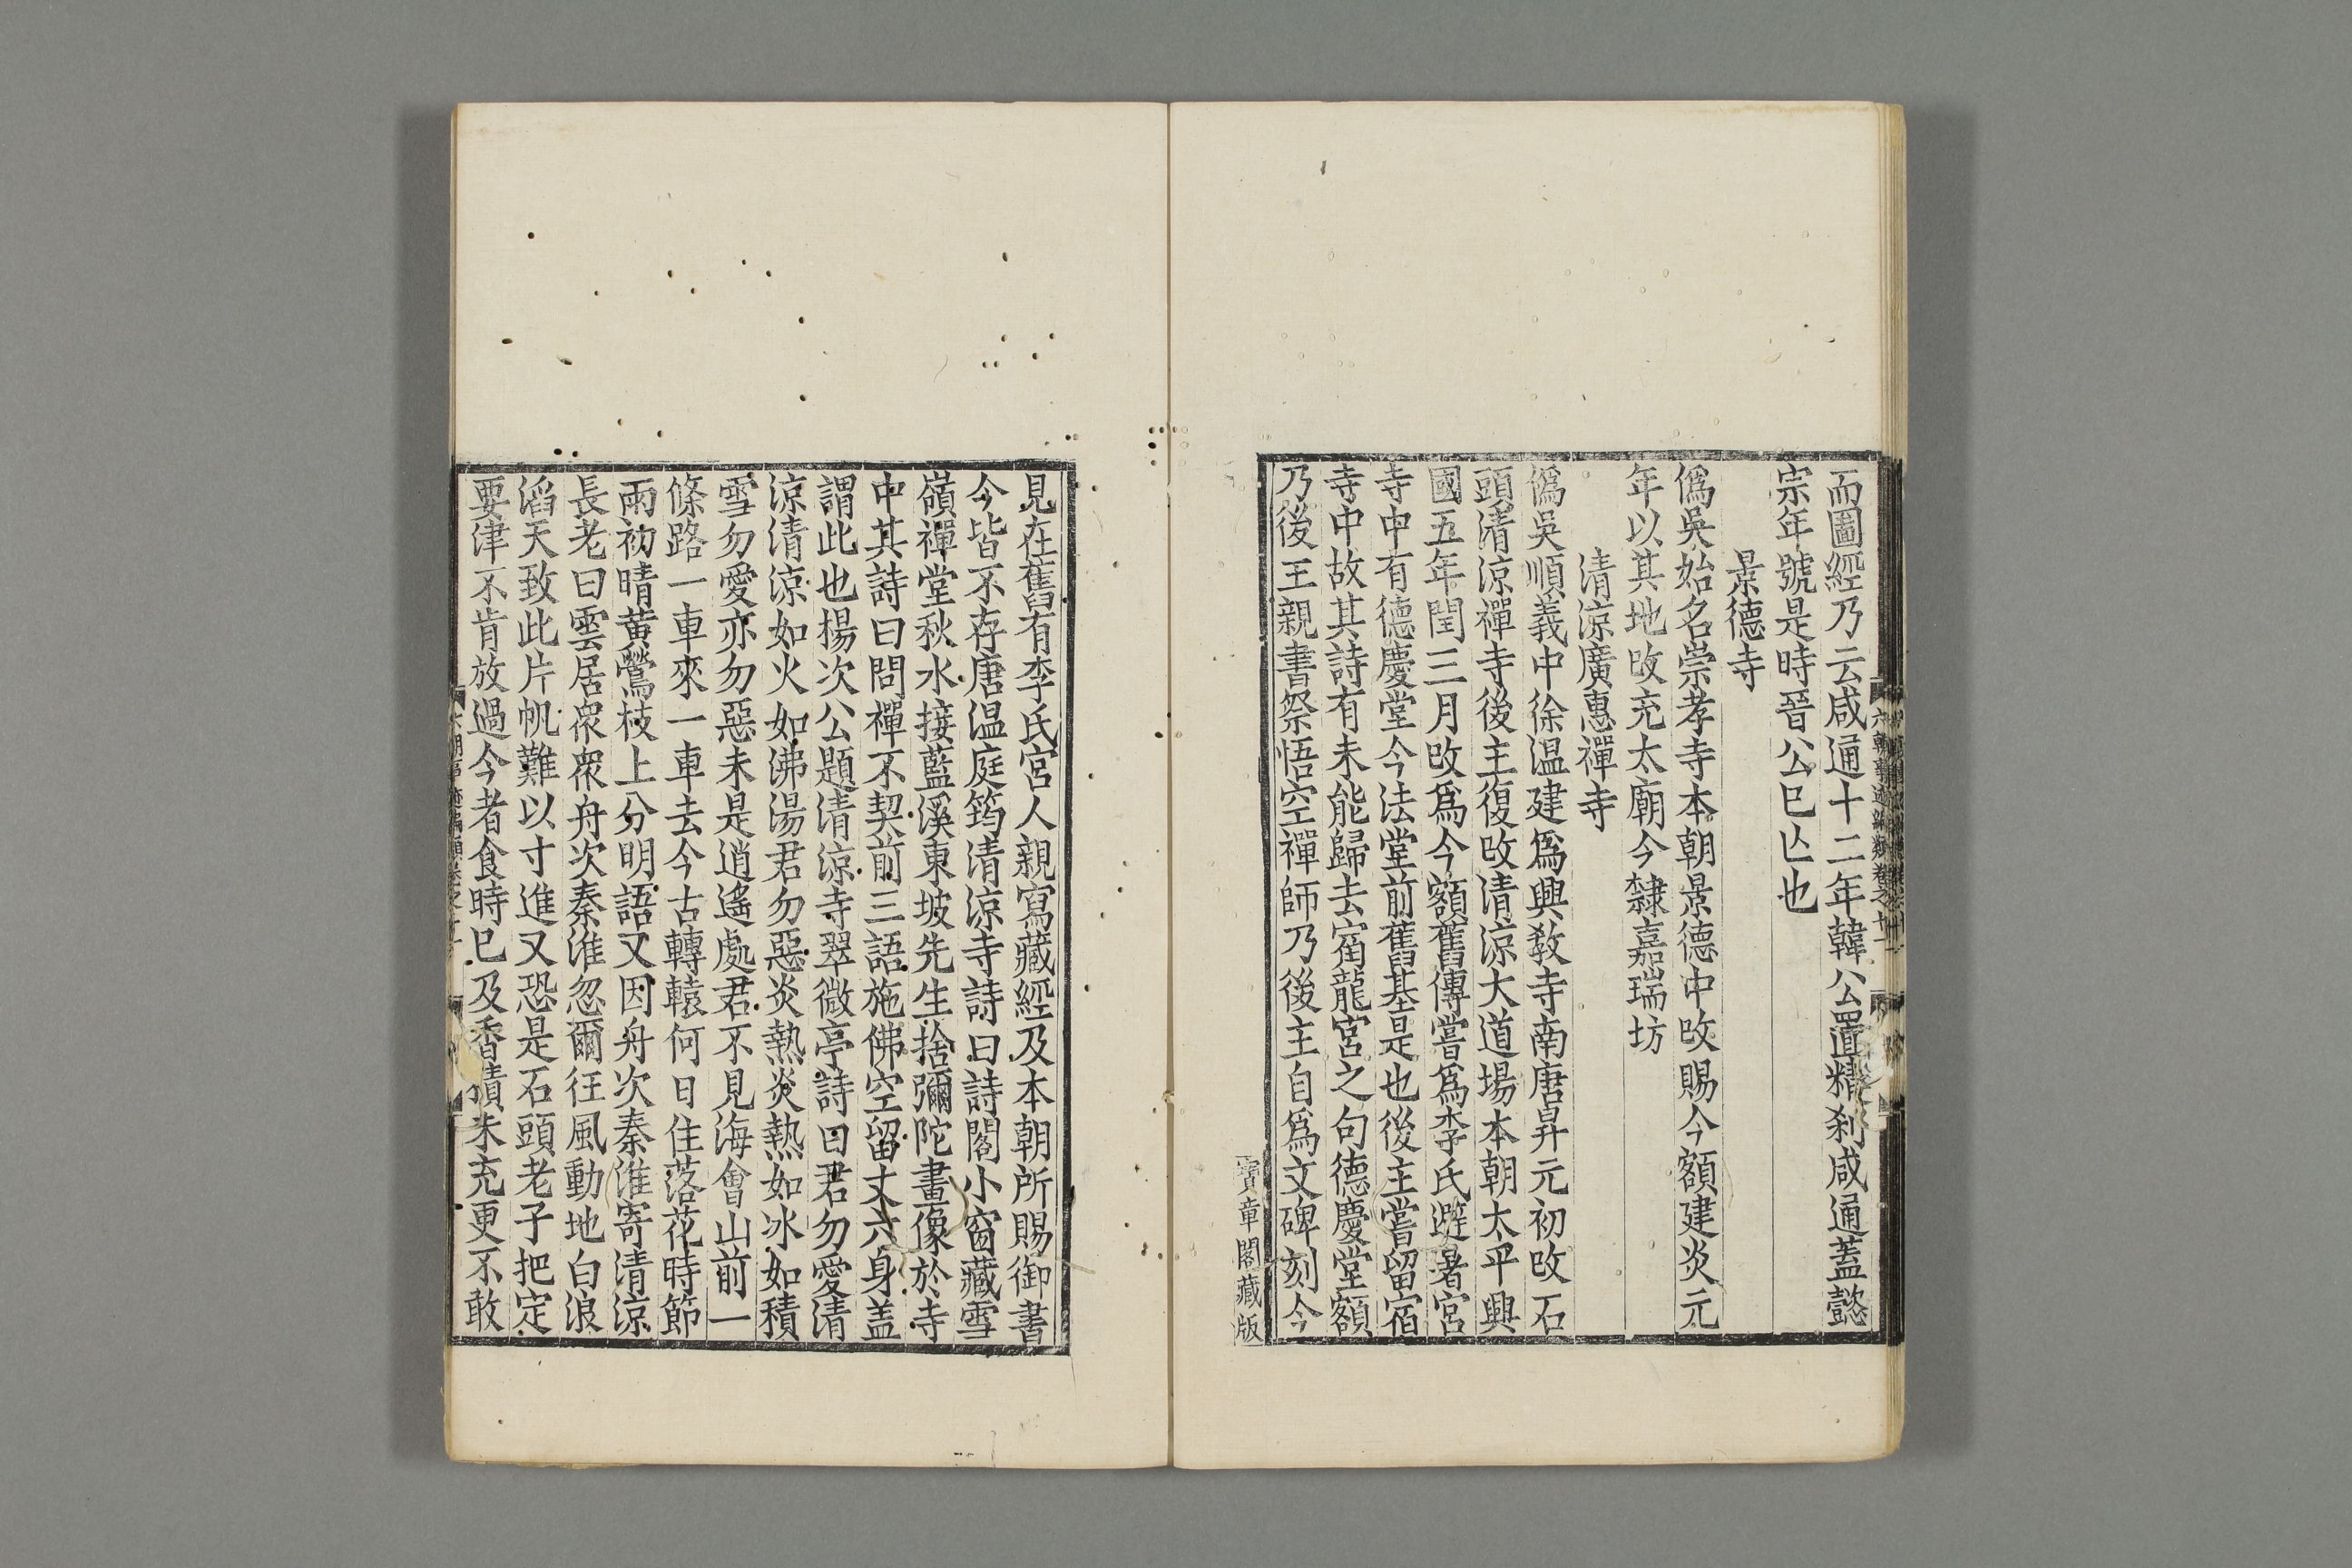 而圖經乃云咸通十二年韓公置精刹咸通蓋懿
宗年號是時晉公已亾也
景德寺
僞吳始名崇孝寺本朝景德中攺賜今額建炎元
年以其地攺充太廟今隸嘉瑞坊
清涼廣惠禪寺
僞吳順義中徐温建爲興教寺南唐昇元初攺石
頭清涼禪寺後主復攺清涼大道場本朝太平興
國五年閏三月攺爲今額舊傳嘗爲李氏避暑宮
寺中有德慶堂今法堂前舊基是也後主嘗留宿
寺中故其詩有未能歸去宿龍宮之句德慶堂額
乃後王親書祭悟空禪師乃後主自爲文碑刻今
寶章閣藏版
見在舊有李氏宮人親寫藏經及本朝所賜御書
今皆不存唐温庭筠清涼寺詩曰詩閣小窗藏雪
嶺禪堂秋水接藍溪東坡先生捨彌陀畫像於寺
中其詩曰問禪不契前三語施佛空留丈六身盖
謂此也楊次公題清涼寺翠微亭詩曰君勿愛清
涼清涼如火如沸湯君勿惡炎熱炎熱如冰如積
雪勿愛亦勿惡未是逍遙處君不見海會山前一
條路一車來一車去今古轉轅何日住落花時節
雨初晴黄鶯枝上分明語又因舟次秦淮寄清涼
長老曰雲居衆衆舟次秦淮忽爾徃風動地白浪
滔天致此片帆難以寸進又恐是石頭老子把定
要津不肯放過今者食時已及香積未充更不敢